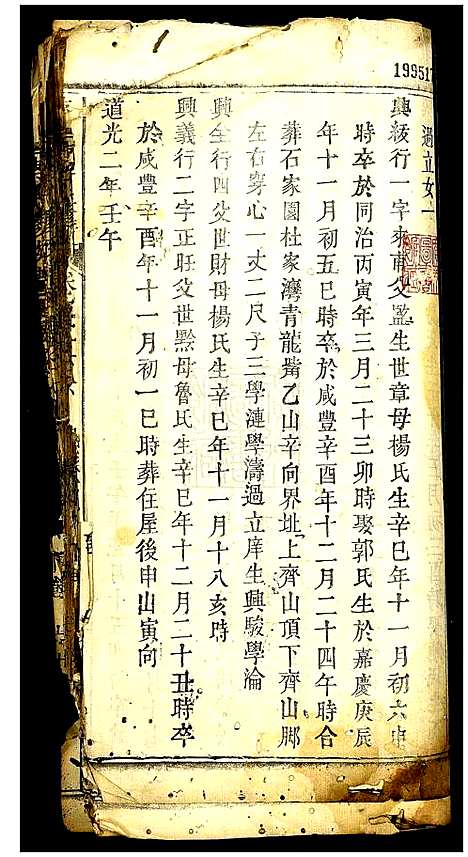 199517
過立女一
興級行一字來甫父監生世章母楊氏生辛巳年十一月初六申
時卒於同治丙寅年三月二十三卯時娶郭氏生於嘉慶庚辰
年十一月初五巳時卒於咸豐辛酉年十二月二十四午時合
葬石家園杜家灣青龍嘴乙山辛向界址上齊山頂下齊山脚
左右穿心一丈二尺子三學漣學濤過立庠生興駿學淪
興全行四父世財母楊氏生辛巳年十一月十八亥時
興義行二字正旺父世黙母魯氏生辛巳年十二月二十丑時卒
於咸豐辛酉年十一月初一巳時葬住屋後申山寅向
道光二年壬午